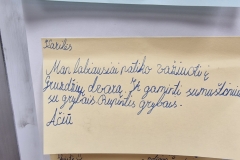 Marilis
Man labiausiai patiko važiuoti į
Gruzdžių dvarą. Ir gaminti sumuštinius
su grybais. Rūpintis grybais.
Ačiū